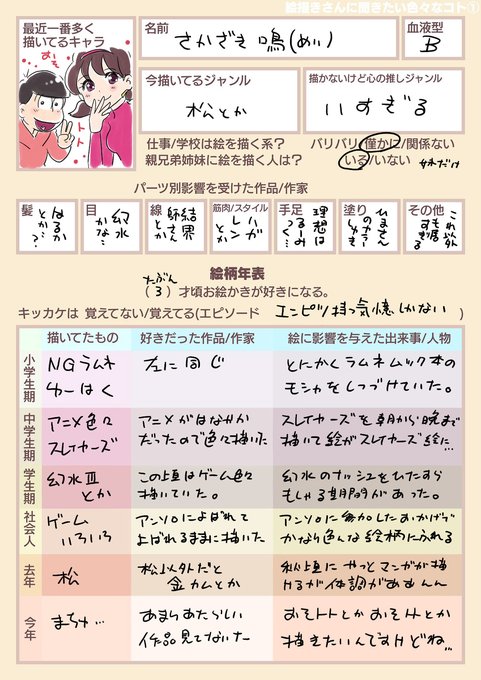 絵描きさんに聞きたい色々なコト①
最近一番多く
描いてるキャラ
トト
名前
さかざき鳴(めい)
血液型
B
今描いてるジャンル
松とか
描かないけど心の推しジャンル
いすぎる
仕事/学校は絵を描く系? バリバリ/僅かに/関係ない
親兄弟姉妹に絵を描く人は? いる/いない 妹だけ
パーツ別影響を受けた作品/作家
髪
はるか
とか…?
目
幻水
かな…
線
結界
師さん
とか
筋肉/スタイル
ハガ
レン
とか
手足
理想は
るーみっく…
塗り
ひまさん
のカラー
しゅき
その他
これ以外
も居
すぎる
絵柄年表
たぶん
(3)才頃お絵かきが好きになる。
キッカケは 覚えてない/覚えてる(エピソード エンピツ持つ気憶しかない )
描いてたもの 好きだった作品/作家 絵に影響を与えた出来事/人物
小学生期
NGラムネ
ゆーはく
左に同じ
とにかくラムネムック本の
モシャをしつづけていた。
中学生期
アニメ色々
スレイヤーズ
アニメがはなやか
だったので色々描いた
スレイヤーズを朝から晩まで
描いて絵がスレイヤーズ絵に…
学生期
幻水Ⅲ
とか
この頃はゲーム色々
描いていた。
幻水のナッシュをひたすら
もしゃる期間があった。
社会人
ゲーム
いろいろ
アンソロによばれて
よばれるままに描いた
アンソロに参加したおかげで
かなり色んな絵柄にふれる
去年
松
松以外だと
金カムとか
秋頃にやっとマンガが描
けるが体調があああん
今年
まっ…
あまりあたらしい
作品見てないナー
おそトトとかおそトトとか
描きたいんですけどね…